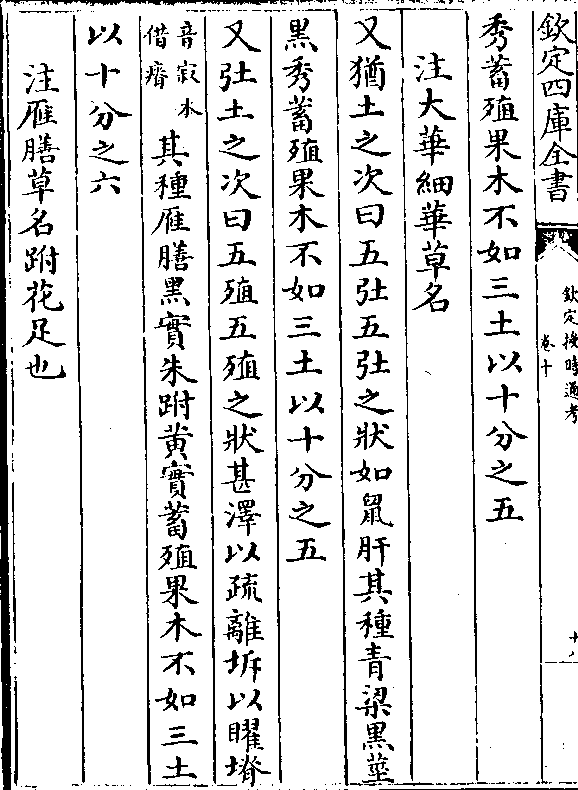 欽定四庫全書
欽定授時通考
卷十
秀蓄殖果木不如三土以十分之五
注大華細華草名
又猶土之次曰五𡉏五𡉏之狀如鼠肝其種青粱黑莖
黑秀蓄殖果木不如三土以十分之五
又𡉏土之次曰五殖五殖之狀甚澤以疏離坼以臞塉
音寂本
借瘠
其種雁膳黑實朱跗黃實蓄殖果木不如三土
以十分之六
注雁膳草名跗花足也